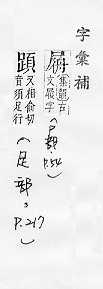 字彙補
集韻古
文字
(尸部, P.54)
又相俞切
音須足行
(足部, P.217)